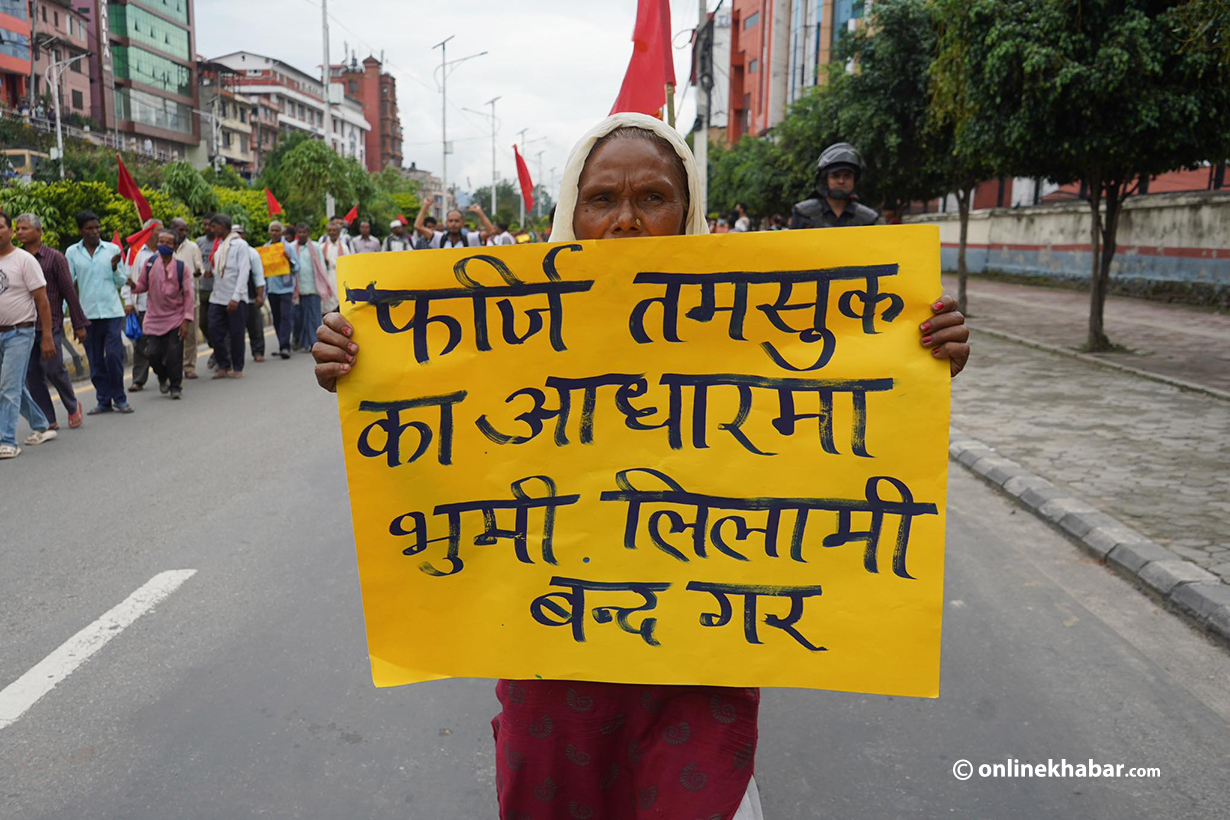 फर्जि तमसुक
का आधारमा
भुमी लिलामी
बन्द गर
© onlinekhabar.com